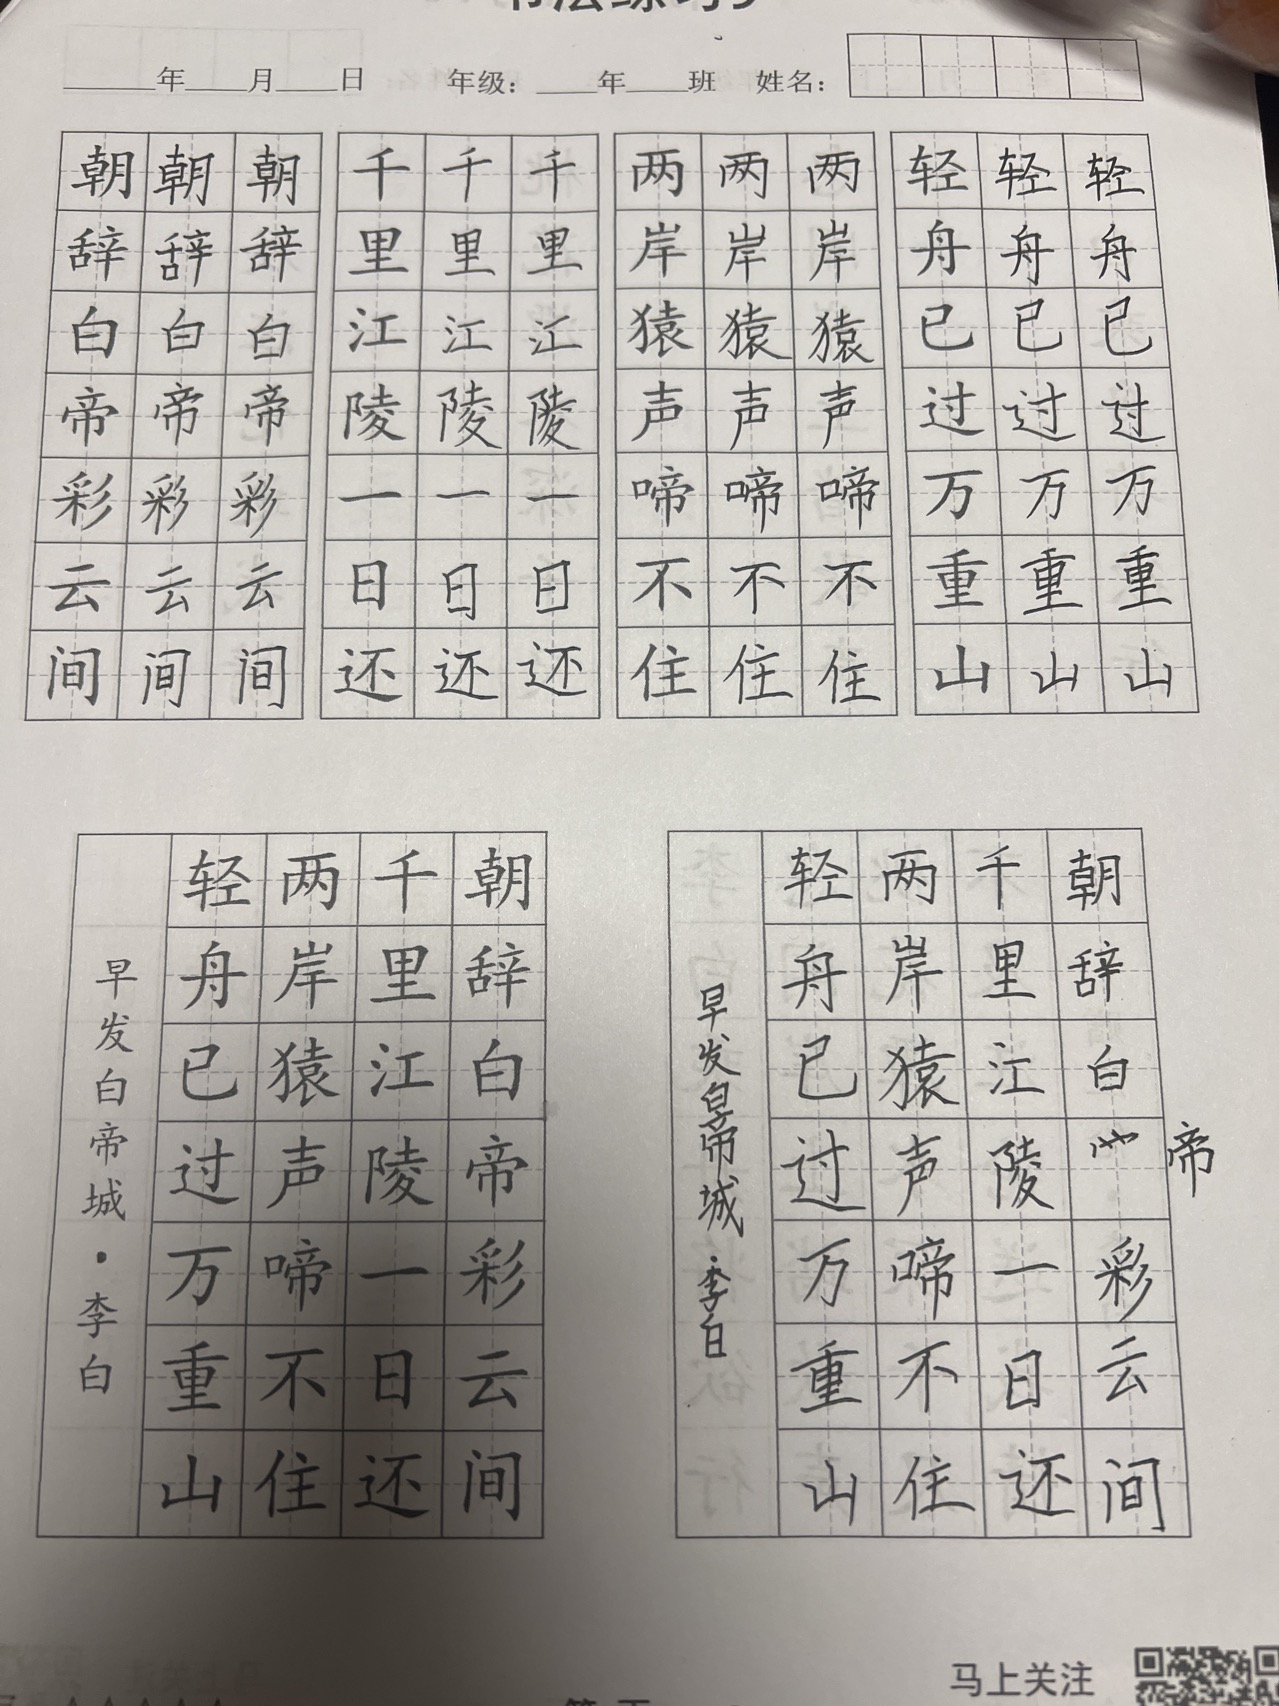 书法练习
年 月 日 年级: 年 班 姓名:
朝朝朝 千千千 两两两 轻轻轻
辞辞辞 里里里 岸岸岸 舟舟舟
白白白 江江江 猿猿猿 已已已
帝帝帝 陵陵陵 声声声 过过过
彩彩彩 一一一 啼啼啼 万万万
云云云 日日日 不不不 重重重
间间间 还还还 住住住 山山山
朝辞白帝彩云间
千里江陵一日还
两岸猿声啼不住
轻舟已过万重山
早发白帝城·李白
帝
朝辞白彩云间
千里江陵一日还
两岸猿声啼不住
轻舟已过万重山
早发白帝城·李白
马上关注